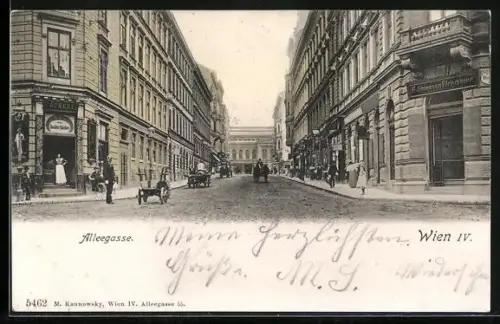 Alleegasse.
Wien IV.
Meine herzlichsten
Grüße. M. S.
5462 M. Kannowsky, Wien IV. Alleegasse 65.